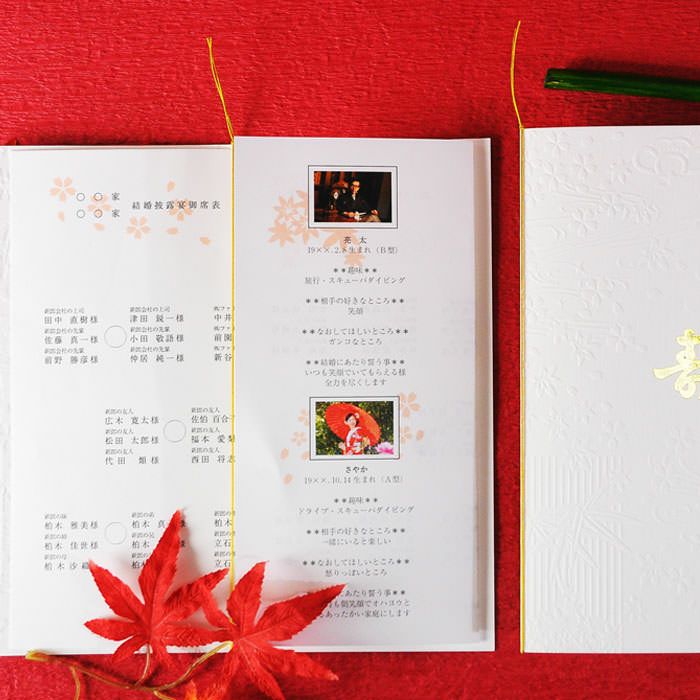 〇 〇 家
〇 〇 家
結婚披露宴御席表
新郎会社の上司
田中 直樹様
新郎会社の先輩
佐藤 真一様
新郎会社の先輩
前野 勝彦様
新郎会社の上司
津田 鋭一様
新郎会社の先輩
小田 敬語様
新郎会社の先輩
仲居 純一様
中井
前園
新谷
新郎の友人
広木 寛太様
新郎の友人
松田 太郎様
新郎の友人
代田 類様
新郎の友人
佐伯 百合子
新郎の友人
福本 愛
新郎の友人
西田 将志
柏木 雅美様
柏木 佳世様
柏木 沙
柏木 真
柏木
柏木
柏木
立石
立石
亮 太
19××.2.8生まれ(B型)
**趣味**
旅行・スキューバダイビング
**相手の好きなところ**
笑顔
**なおしてほしいところ**
ガンコなところ
**結婚にあたり誓う事**
いつも笑顔でいてもらえる様
全力を尽くします
さやか
19××.10.14生まれ(A型)
**趣味**
ドライブ・スキューバダイビング
**相手の好きなところ**
一緒にいると楽しい
**なおしてほしいところ**
怒りっぽいところ
にあたり誓う事**
も朝笑顔でオハヨウと
るあったかい家庭にします
寿